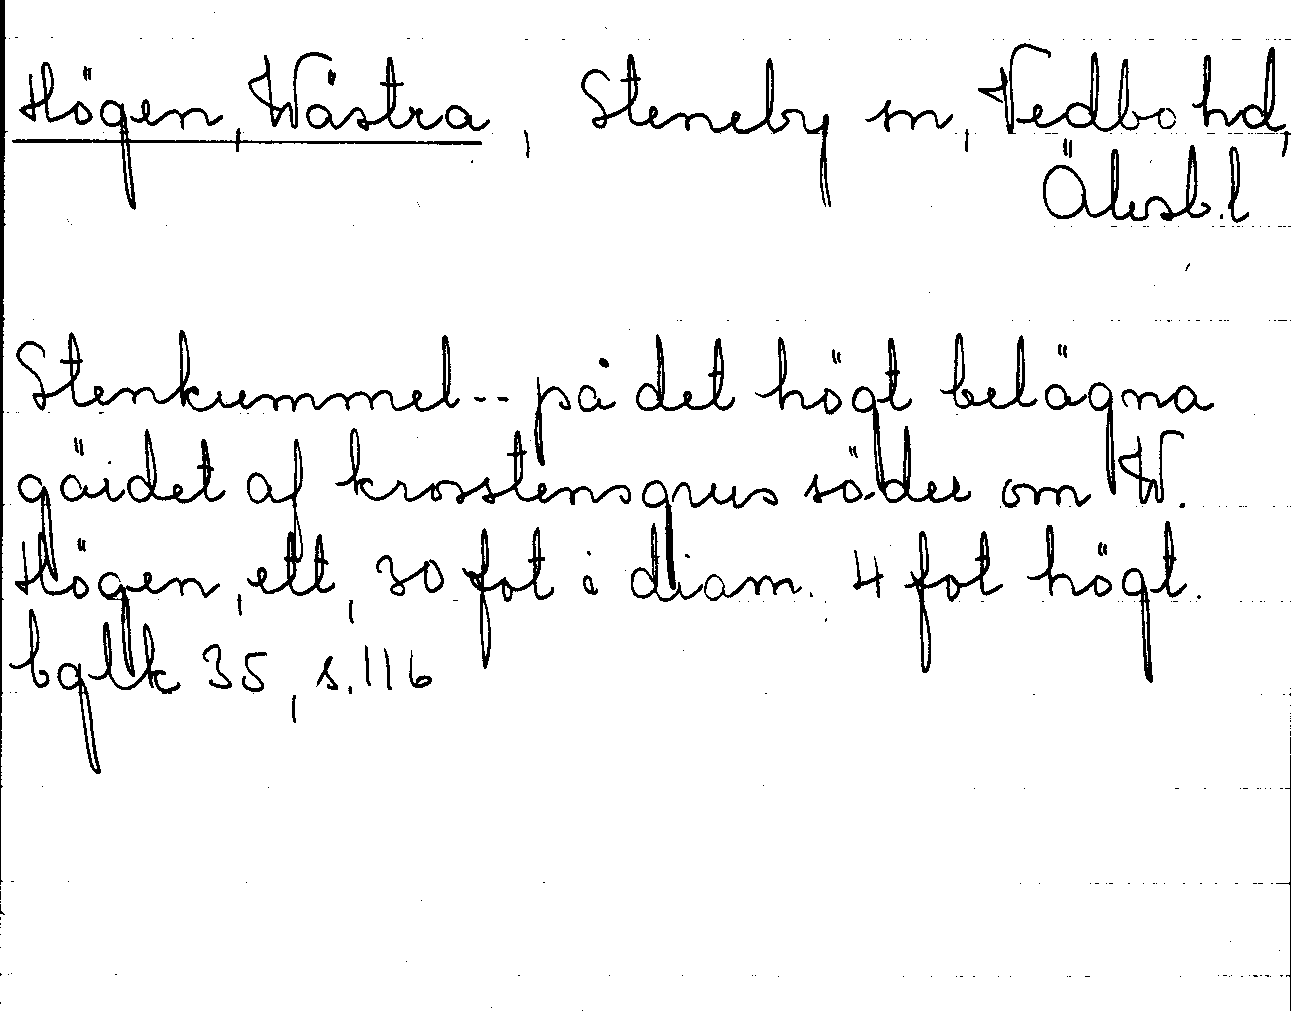 Högen, Wästra, Steneby sn, Vedbo hd,
Älvsb.l
Stenkummel -- på det högt belägna
gärdet af krosstensgrus söder om W.
Högen, ett, 30 fot i diam. 4 fot högt.
bglk 35, s.116